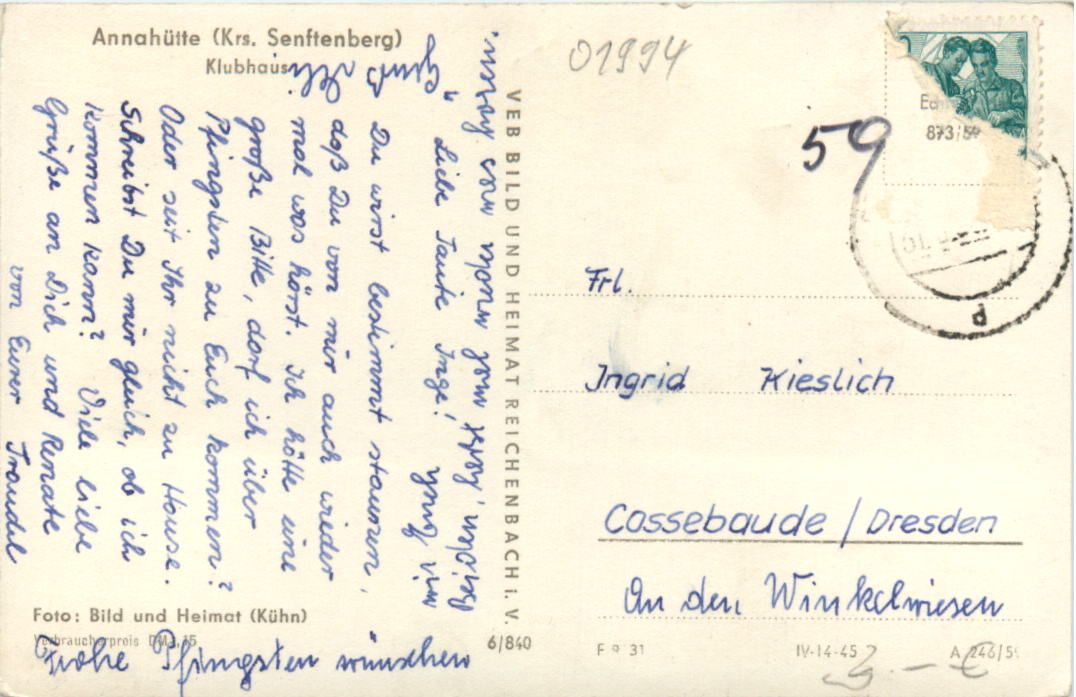 Annahütte (Krs. Senftenberg)
Klubhaus
Liebe Tante Inge!
Du wirst bestimmt staunen,
daß Du von mir auch wieder
mal was hörst. Ich hätte eine
große Bitte, darf ich über
Pfingsten zu Euch kommen?
Oder seit Ihr nicht zu Hause.
Schreibst Du mir gleich, ob ich
kommen kann? Viele liebe
Grüße an Dich und Renate
von Eurer Traudel
Frohe Pfingsten wünschen
Foto: Bild und Heimat (Kühn)
Verbraucherpreis DM -,15
VEB BILD UND HEIMAT REICHENBACH i. V.
6/840
01994
59
873/59
Frl.
Ingrid Kieslich
Cossebaude / Dresden
An den Winkelwiesen
F 9 31
IV-14-45
A 246/59
3.- €